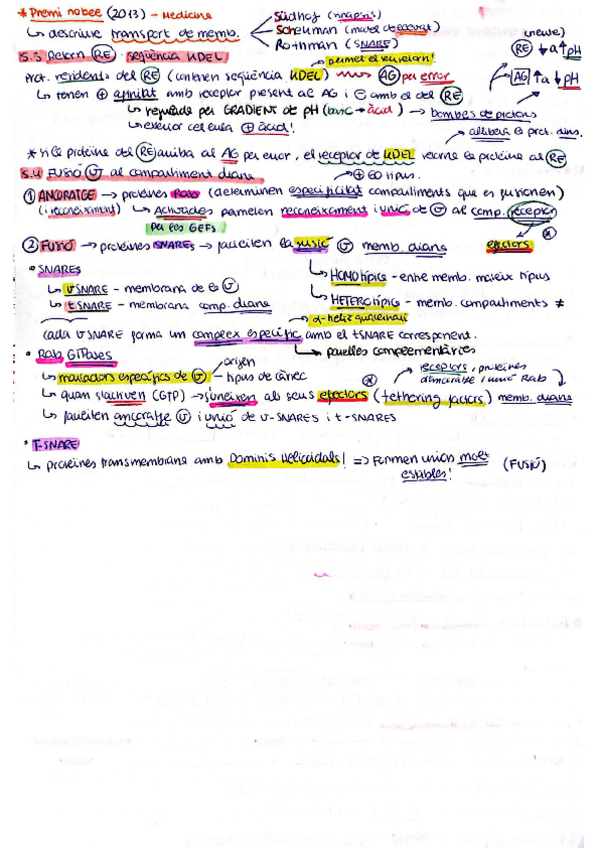 * Premi nobel (2013) - Medicina
Südhof (sinapsis)
↳ descriure transport de memb.
Schekman (model de llevat)
Rothman (SNARE)
5.3 Retorn (RE) · seqüència KDEL
permet el
(neutre)
(RE) ↓a ↑pH
Prot. residents del (RE) (contenen seqüència KDEL) → (AG) per error
(AG) ↑a ↓pH
↳ tenen ⊕ afinitat amb receptor present al AG i ⊖ amb el del (RE)
↳ regulada per GRADIENT de pH (bàsic → àcid) → bombes de protons
↳ exterior cèl·lula ⊕ àcid!
allibera
* si la proteïna del (RE) arriba al AG per error, el receptor de KDEL retorna la proteïna al (RE)
5.4 Fusió al compartiment diana
⊕ 60 tipus.
① ANCORATGE → proteïnes Rab (determinen especificitat compartiments que es fusionen)
(i reconeixement) ↳ Activades permeten reconeixement i unió de al comp. receptor
per les GEFs
② FUSIÓ → proteïnes SNAREs → faciliten la fusió memb. diana
efectors *
• SNAREs
↳ HOMOtípica - entre memb. mateix tipus
↳ v SNARE - membrana de la
↳ HETEROtípica - memb. compartiments ≠
↳ t SNARE - membrana comp. diana
α-hèlix
cada v SNARE forma un complex específic amb el t SNARE corresponent.
↳ parelles complementàries
• Rab GTPases
origen
↳ marcadors específics de
tipus de càrrec
receptors, proteïnes
d'ancoratge i unió Rab
↳ quan s'activen (GTP) → s'uneixen als seus efectors (tethering factors) memb. diana
↳ faciliten ancoratge i unió de v-SNARES i t-SNARES
• T-SNARE
↳ proteïnes transmembrana amb Dominis Helicoidals! => Formen unions molt estables! (FUSIÓ)